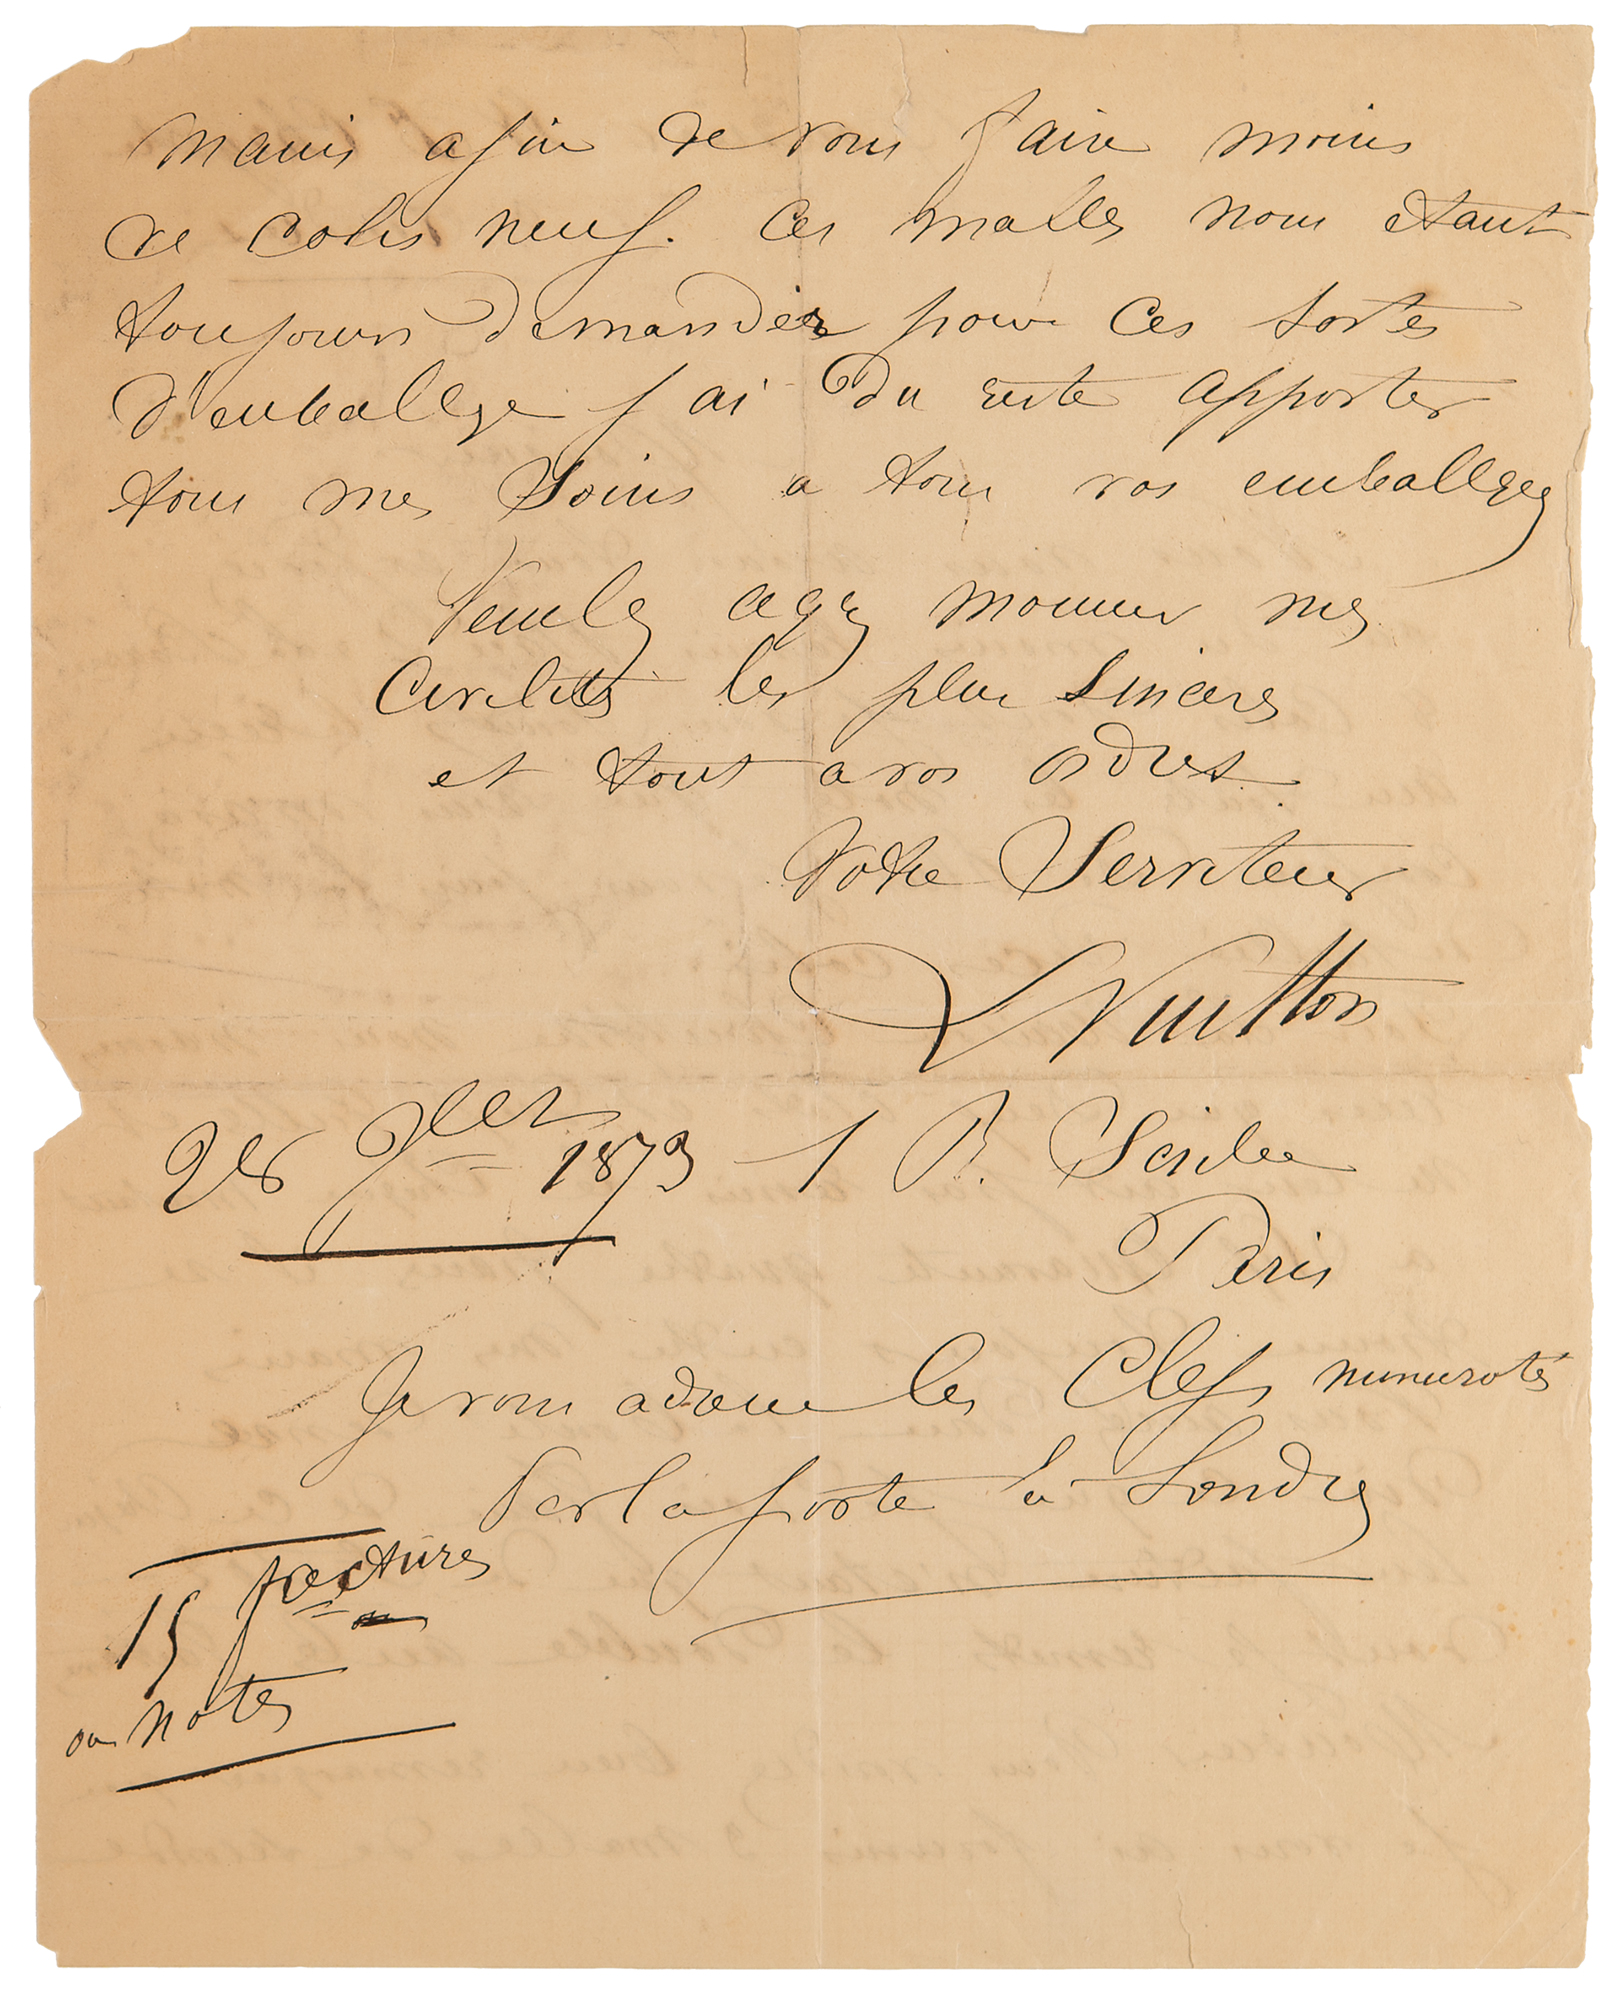 mains afin de vous faire moins
de colis neuf. Ces malles nous etant
toujours demander pour ces sortes
d'emballge j ai du reste apporter
tous mes Soins a tous vos emballges
Veulez agrez monsieur mes
Civilités les plus Sinceres
et tout a vos ordres
Votre Serviteur
L Vuitton
28 1873 1 R. Scribe
Paris
Je vous adresse les Clefs numerotés
Par la poste a Londres
15 factures
ou notes